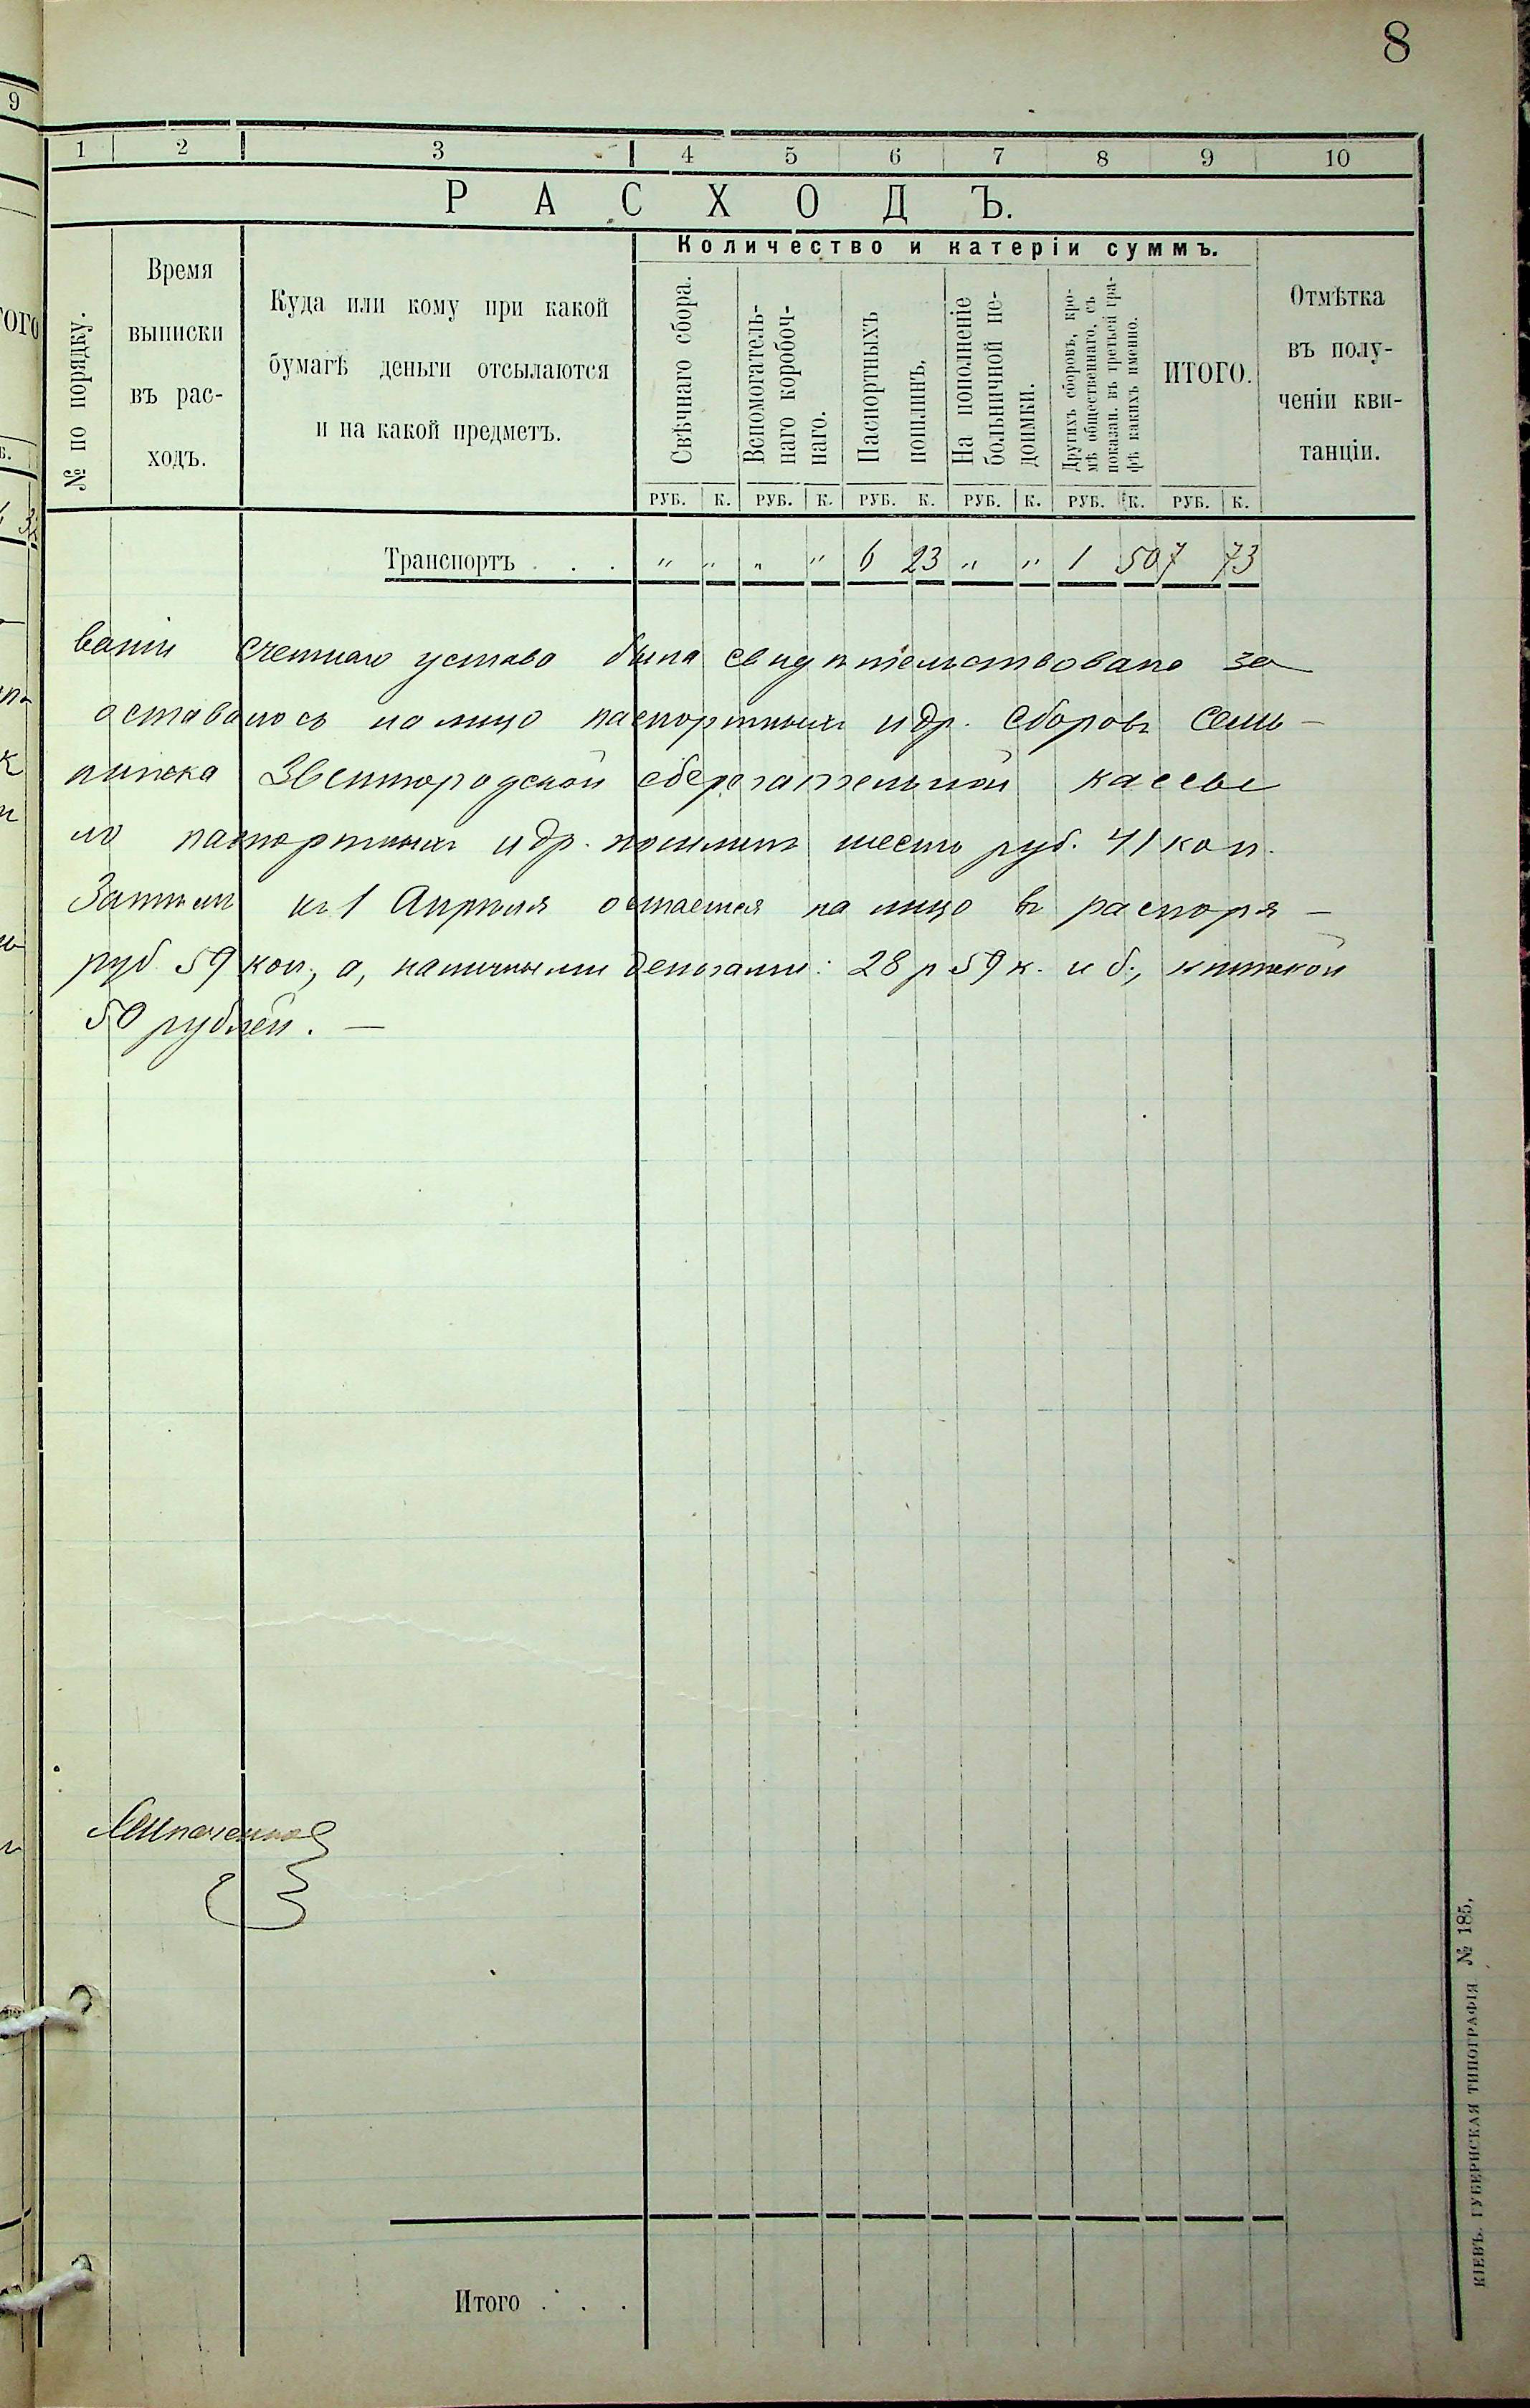 8
9
1 2 3 4 5 6 7 8 9 10
РАСХОДЪ.
№ по порядку.
Время
выписки
въ рас-
ходъ.
Куда или кому при какой
бумагѣ деньги отсылаются
и на какой предметъ.
Количество и катеріи суммъ.
Свѣчнаго сбора.
Вспомогатель-
наго коробоч-
наго.
Паспортныхъ
пошлинъ.
На пополненіе
больничной не-
доимки.
Другихъ сборовъ, кро-
мѣ общественнаго, съ
показан. въ третьей гра-
фѣ какихъ именно.
ИТОГО.
Отмѣтка
въ полу-
ченіи кви-
танціи.
РУБ. К. РУБ. К. РУБ. К. РУБ. К. РУБ. К. РУБ. К.
Транспортъ . . . " " " " 6 23 " " 1 50 7 73
ваніи счетнаго устава была свидѣтельствована за
оставалось на лицо паспортныхъ и др. сборовъ семь-
нижка Звенигородской сберегательной кассы
ло паспортныхъ и др. пошлинъ шесть руб. 41 коп.
Затѣмъ къ 1 Апрѣля остается на лицо въ распоря-
руб. 59 коп., а, наличными деньгами: 28 р 59 к. и б, книжкой
50 рублей. —
Итого . . .
КІЕВЪ. ГУБЕРНСКАЯ ТИПОГРАФІЯ № 185,